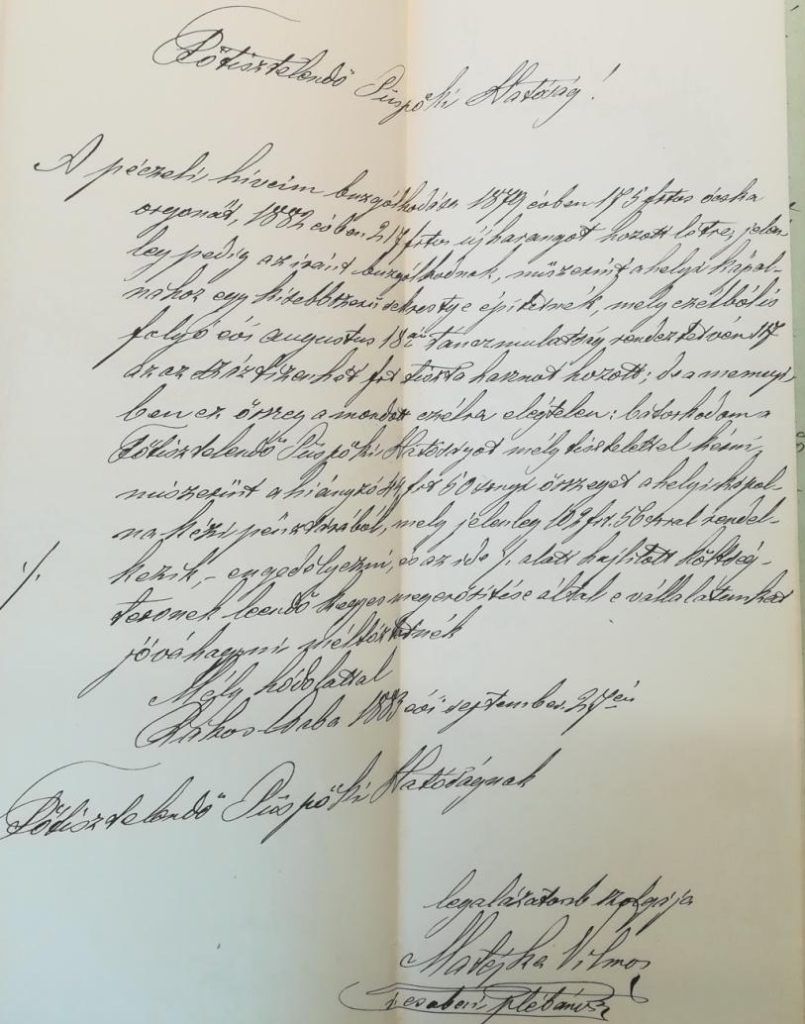 Főtisztelendő Püspöki Hatóság!
A péczeli híveim buzgólkodása 1879 évben 175 frtos ócska
orgonát, 1882 évben 217 frtos új harangot hozott létre, jelen
leg pedig az iránt buzgólkodnak, miszerint a helyi kápol-
nához egy kisebbszerű sekrestye építetnék, mely czélból is
folyó évi augusztus 18án tánczmulatság rendeztetvén 117
azaz száztizenhét frt tiszta hasznot hozott; de a mennyi
ben ez összeg a mondott czélra elégtelen: bátorkodom a
Főtisztelendő Püspöki Hatóságot mély tisztelettel kérni,
miszerint a hiányzó 44 frt 50 xrnyi összeget a helyi kápol-
na kézi pénztárából, mely jelenleg 109 frt. 56 xrral rendel-
kezik, - engedélyezni, és az ide ·/. alatt hajlított költség-
·/.
tervnek leendő kegyes megerősítése által e vállalatunkat
jóváhagyni méltóztatnék
Mély hódolattal
Rákos Csaba 1883 évi september 27én
Főtisztelendő Püspöki Hatóságnak
legalázatosb szolgája
Matejka Vilmos
r. csabai plébános